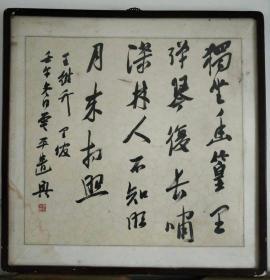 獨坐幽篁里
彈琴復長嘯
深林人不知明
月来相照
王維
壬午冬日雲平遣興